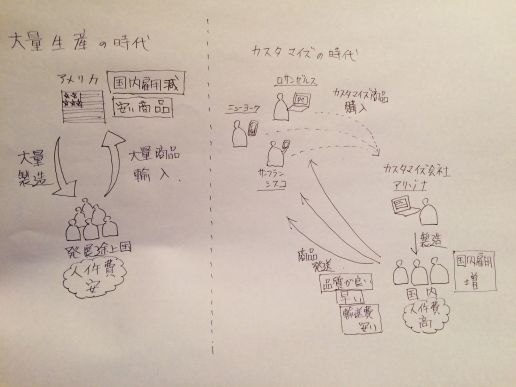 大量生産の時代
アメリカ
国内雇用減
安い商品
大量
製造
大量商品
輸入
発展途上国
人件費
安
カスタマイズの時代
ロサンゼルス
カスタマイズ商品
購入
ニューヨーク
サンフラン
シスコ
カスタマイズ会社
アリゾナ
製造
商品
発送
品質が良い
早い
輸送費
安い
国内
人件費
高
国内雇用
増